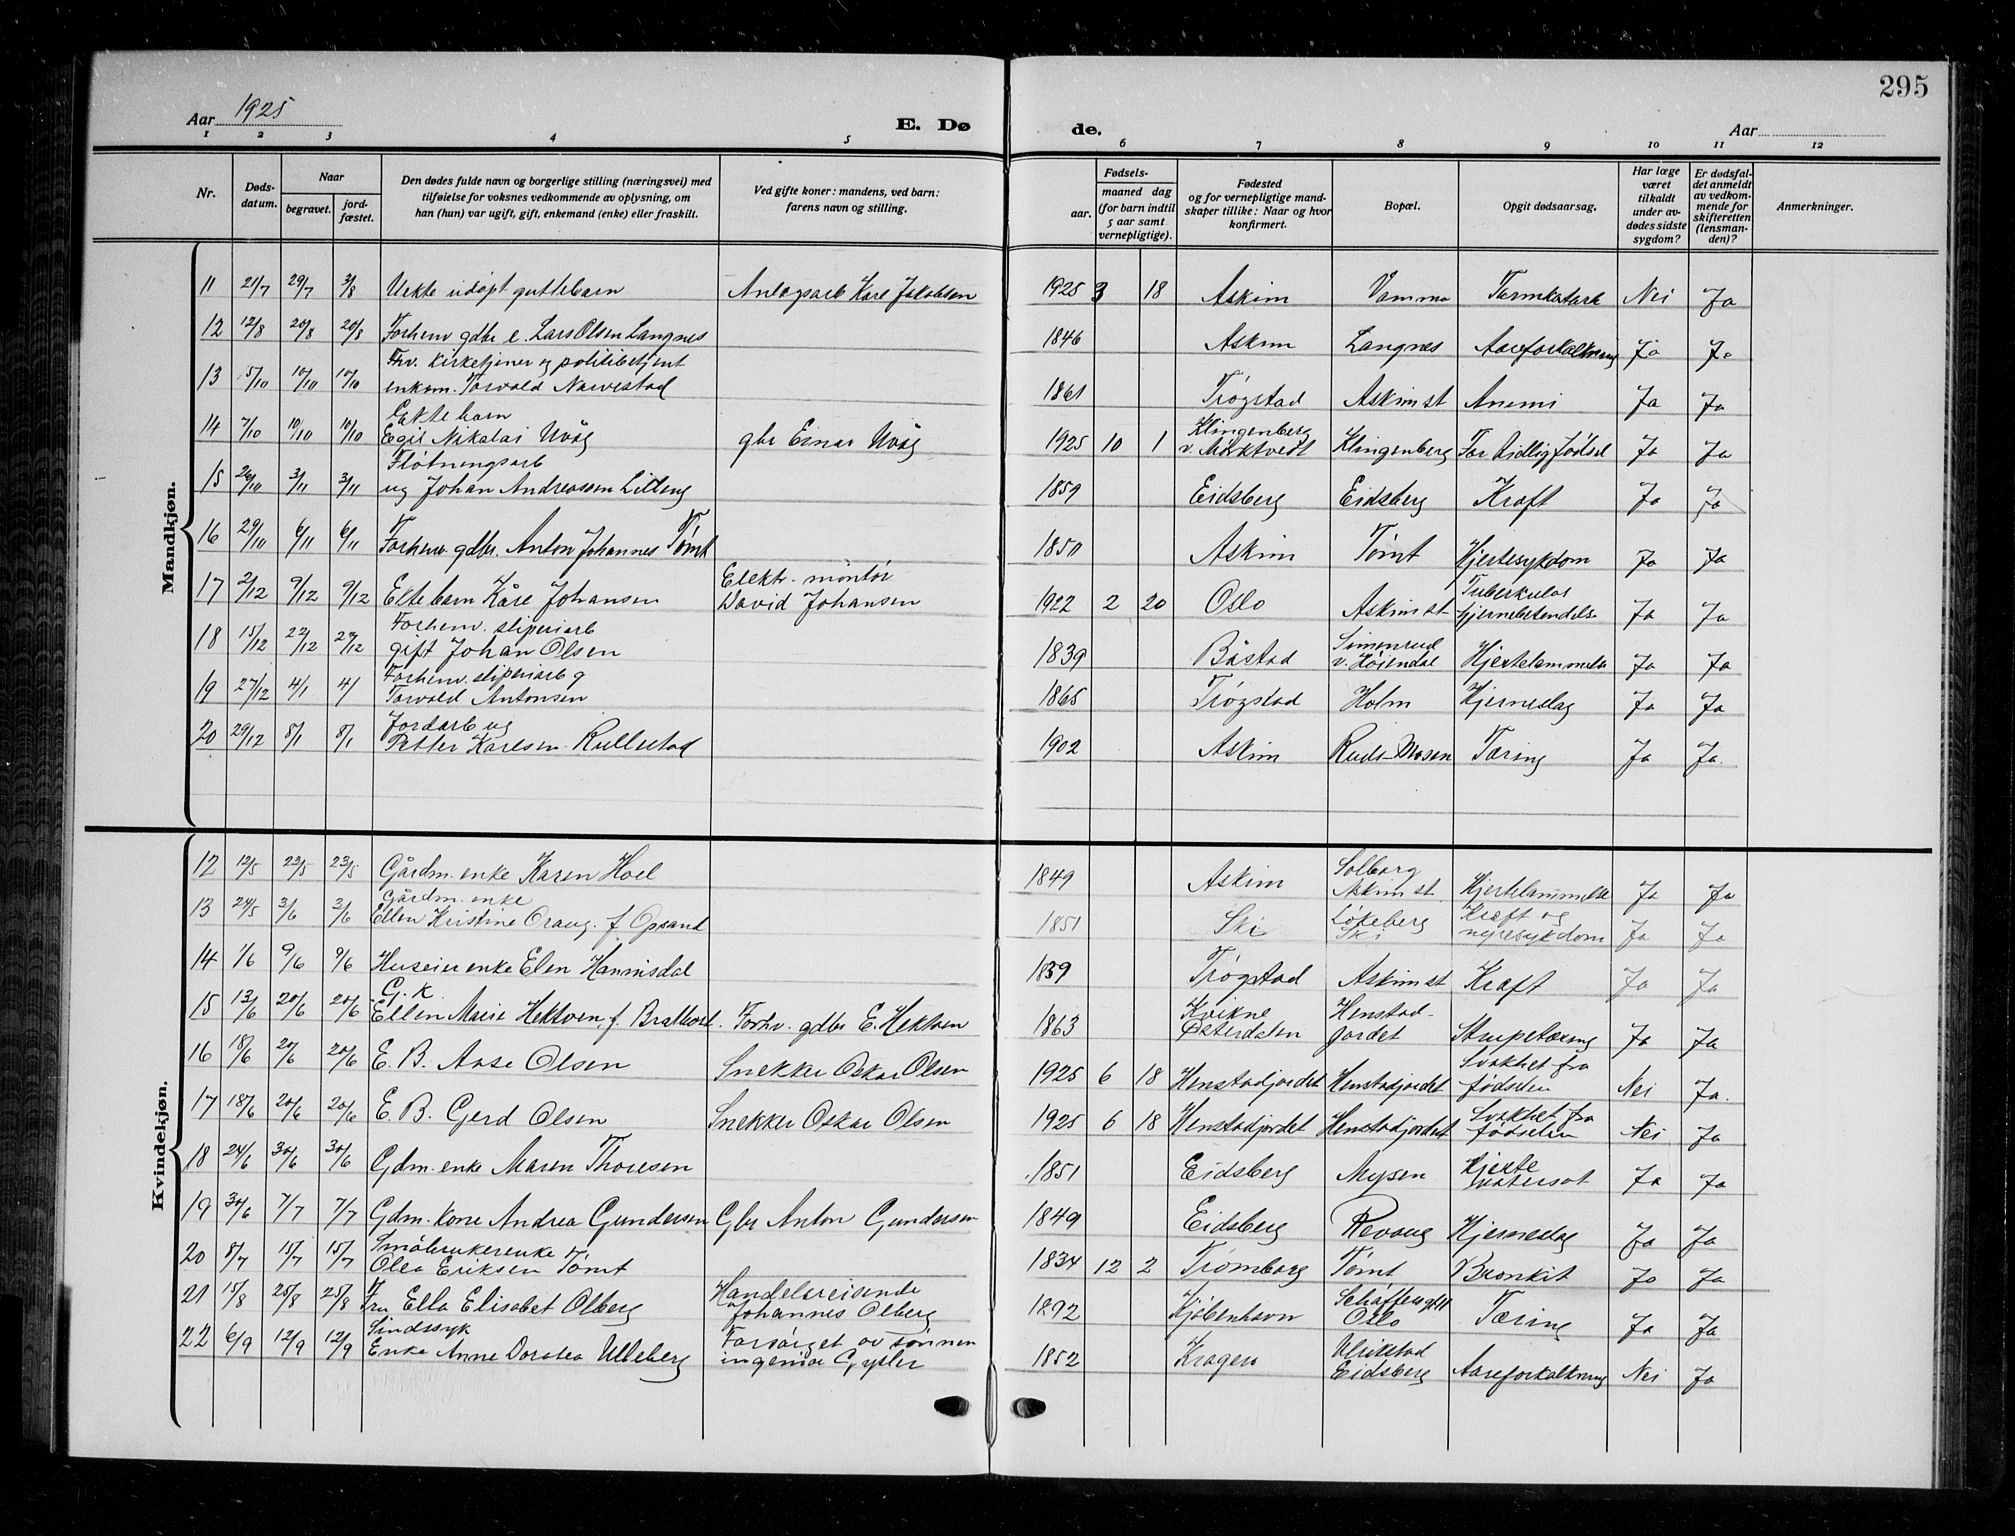 295
Aar 1925
E. Dø de.
Aar
1 2 3 4 5 6 7 8 9 10 11 12
Nr.
Døds-
datum.
Naar
begravet.
jord-
fæstet.
Den dødes fulde navn og borgerlige stilling (næringsvei) med
tilføielse for voksnes vedkommende av oplysning, om
han (hun) var ugift, gift, enkemand (enke) eller fraskilt.
Ved gifte koner: mandens, ved barn:
farens navn og stilling.
Fødsels-
aar.
maaned dag
(for barn indtil
5 aar samt
vernepligtige).
Fødested
og for vernepligtige mand-
skaper tillike: Naar og hvor
konfirmert.
Bopæl.
Opgit dødsaarsag.
Har læge
været
tilkaldt
under av-
dødes sidste
sygdom?
Er dødsfal-
det anmeldt
av vedkom-
mende for
skifteretten
(lensman-
den)?
Anmerkninger.
Mandkjøn.
11 21/7 29/7 3/8 Uekte udøpt guttebarn Anlegsarb Kare Jakobsen 1925 3 18 Askim Vamma Tarmkatark Nei Ja
12 12/8 20/8 20/8 Forhenv gdbr e. Lars Olsen Langnes 1846 Askim Langnæs Aareforkalkning Ja Ja
Fhv. kirketjener og politibetjent
13 5/10 10/10 10/10 enkem. Torvald Narvestad 1861 Trøgstad Askim st Anemi Ja Ja
Ektebarn
14 7/10 10/10 10/10 Egil Nikolai Uvåg gbr Einar Uvåg 1925 10 1 Klingenberg
v. Mørktvedt Klingenberg For tidlig fødsel Ja Ja
Fløtningsarb
15 26/10 3/11 3/11 ug Johan Andreassen 1859 Eidsberg Eidsberg Kræft Ja Ja
16 29/10 6/11 6/11 Forhenv. gdbr. Anton Johannes Tømt 1850 Askim Tømt Hjertesykdom Ja Ja
Elektr. montør
17 2/12 9/12 9/12 Ektebarn Kåre Johansen David Johansen 1922 2 20 Oslo Askim st Tuberkuløs
hjernebetendelse Ja Ja
Forhenv. sliperiarb
18 15/12 22/12 22/12 gift Johan Olsen 1839 Båstad Simenrud
v. Høiendal Hjertelammelse Ja Ja
Forhenv. sliperiarb g
19 27/12 4/1 4/1 Torvald Antonsen 1865 Trøgstad Holm Hjerneslag Ja Ja
Jordarb ug
20 29/12 8/1 8/1 Petter Karlsen Rullestad 1902 Askim Ruds-Mosen Tæring Ja Ja.
Kvindekjøn.
12 12/5 23/5 23/5 Gårdm. enke Karen Hoel 1849 Askim Solborg
Askim st Hjertelammelse Ja Ja
Gårdm. enke
13 24/5 3/6 3/6 Ellen Kristine Oraug f. Opsand 1851 Ski Løkeberg
Ski Kræft og
nyresykdom Ja Ja
14 1/6 9/6 9/6 Huseierenke Elen Hannisdal 1839 Trøgstad Askim st Kræft Ja Ja
G. k.
15 13/6 20/6 20/6 Ellen Marie Hektoen f. Brattvol. Forhv. gdbr E. Hektoen 1863 Kvikne
Østerdalen Henstad-
jordet Strupetæring Ja Ja
16 18/6 20/6 20/6 E. B. Aase Olsen Snekker Oskar Olsen 1925 6 18 Henstadjordet Henstadjordet Svakhet fra
fødselen Nei Ja.
17 18/6 20/6 20/6 E. B. Gerd Olsen Snekker Oskar Olsen 1925 6 18 Henstadjordet Henstadjordet Svakhet fra
fødselen Nei Ja
18 24/6 30/6 30/6 Gdm. enke Maren Thoresen 1851 Eidsberg Mysen Hjerte
vatersot Ja Ja
19 30/6 7/7 7/7 Gdm. kone Andrea Gundersen Gbr Anton Gundersen 1849 Eidsberg Revaug Hjerneslag Ja Ja
Småbrukerenke
20 8/7 15/7 15/7 Olea Eriksen Tømt 1834 12 2 Trømborg Tømt Bronkit Ja Ja
21 15/8 25/8 25/8 Fru Ella Elisabet Olberg Handelsreisende
Johannes Olberg 1892 Kjøbenhavn Oslo Tæring Ja Ja
Sindssyk
22 6/9 12/9 12/9 Enke Anne Dorotea Ulleberg Forsørget av sønnen
ingeniør Gysler 1852 Kragerø Ulrikstad
Eidsberg Aareforkalkning Nei Ja